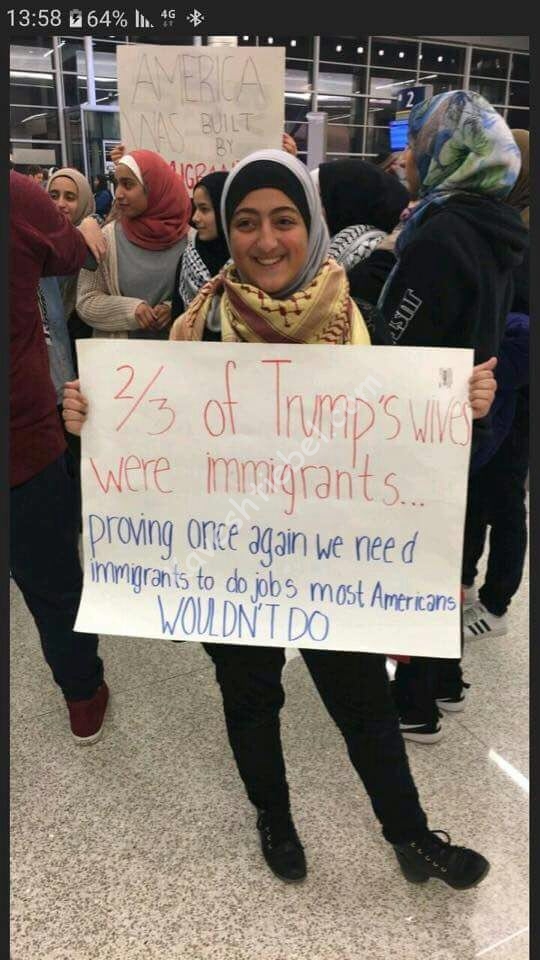 13:58 64% 4G
AMERICA
WAS BUILT
BY
2
2/3 of Trump's wives
were immigrants...
proving once again we need
immigrants to do jobs most Americans
WOULDN'T DO